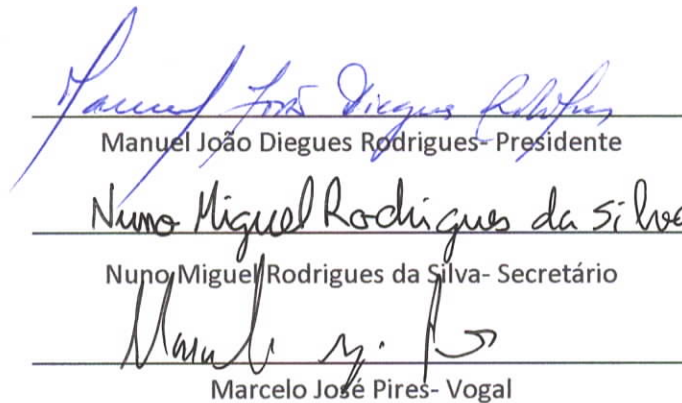 Manuel João Diegues Rodrigues
Manuel João Diegues Rodrigues- Presidente
Nuno Miguel Rodrigues da Silva
Nuno Miguel Rodrigues da Silva- Secretário
Marcelo José Pires- Vogal